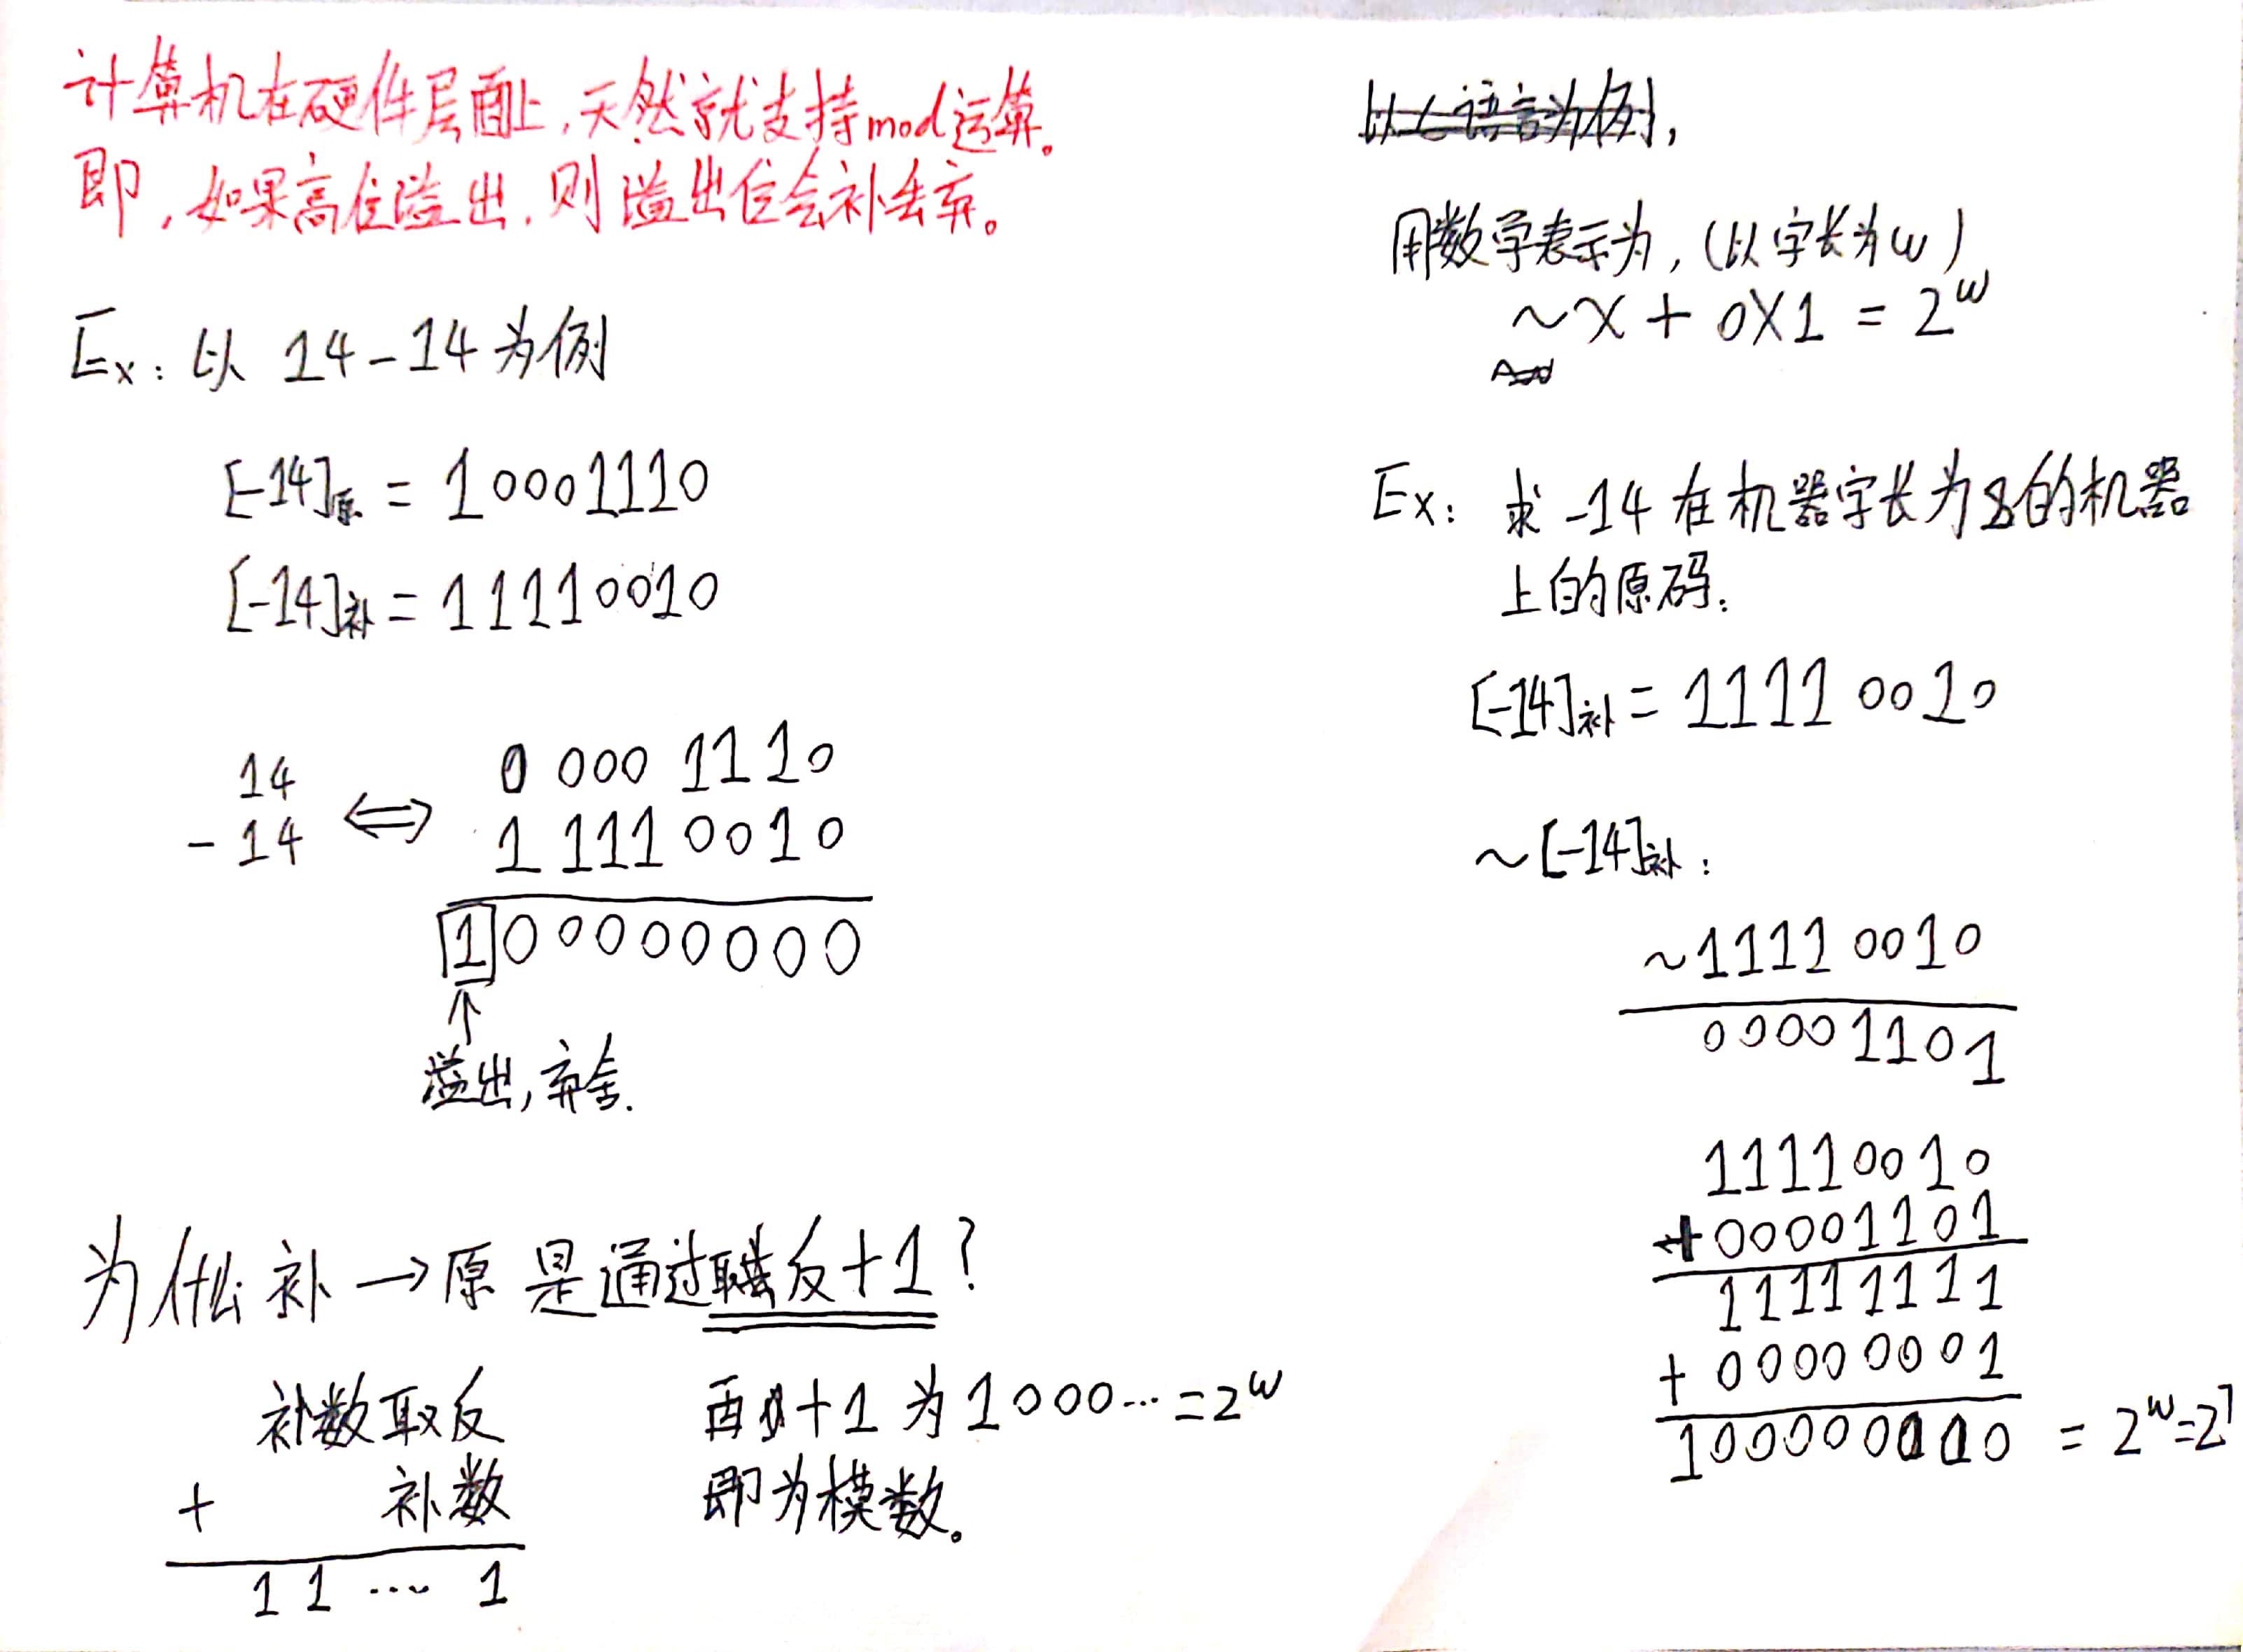 计算机在硬件层面上,天然就支持mod运算。
即,如果高位溢出,则溢出位会补丢弃。
Ex: 以 14-14 为例
[-14]原 = 10001110
[-14]补 = 11110010
14
- 14
⟺
0 000 1110
1 111 0010
1 00000000
↑
溢出,弃舍.
为什么 补→原 是通过取反+1?
补数取反
+ 补数
1 1 … 1
再+1 为 1000… = 2^w
即为模数。
以C语言为例,
用数学表示为,(以字长为w)
~X + 0X1 = 2^w
Ex: 求 -14 在机器字长为8的机器
上的原码:
[-14]补 = 1111 0010
~[-14]补:
~1111 0010
0000 1101
11110010
+00001101
11111111
+ 00000001
100000000 = 2^w=2^7